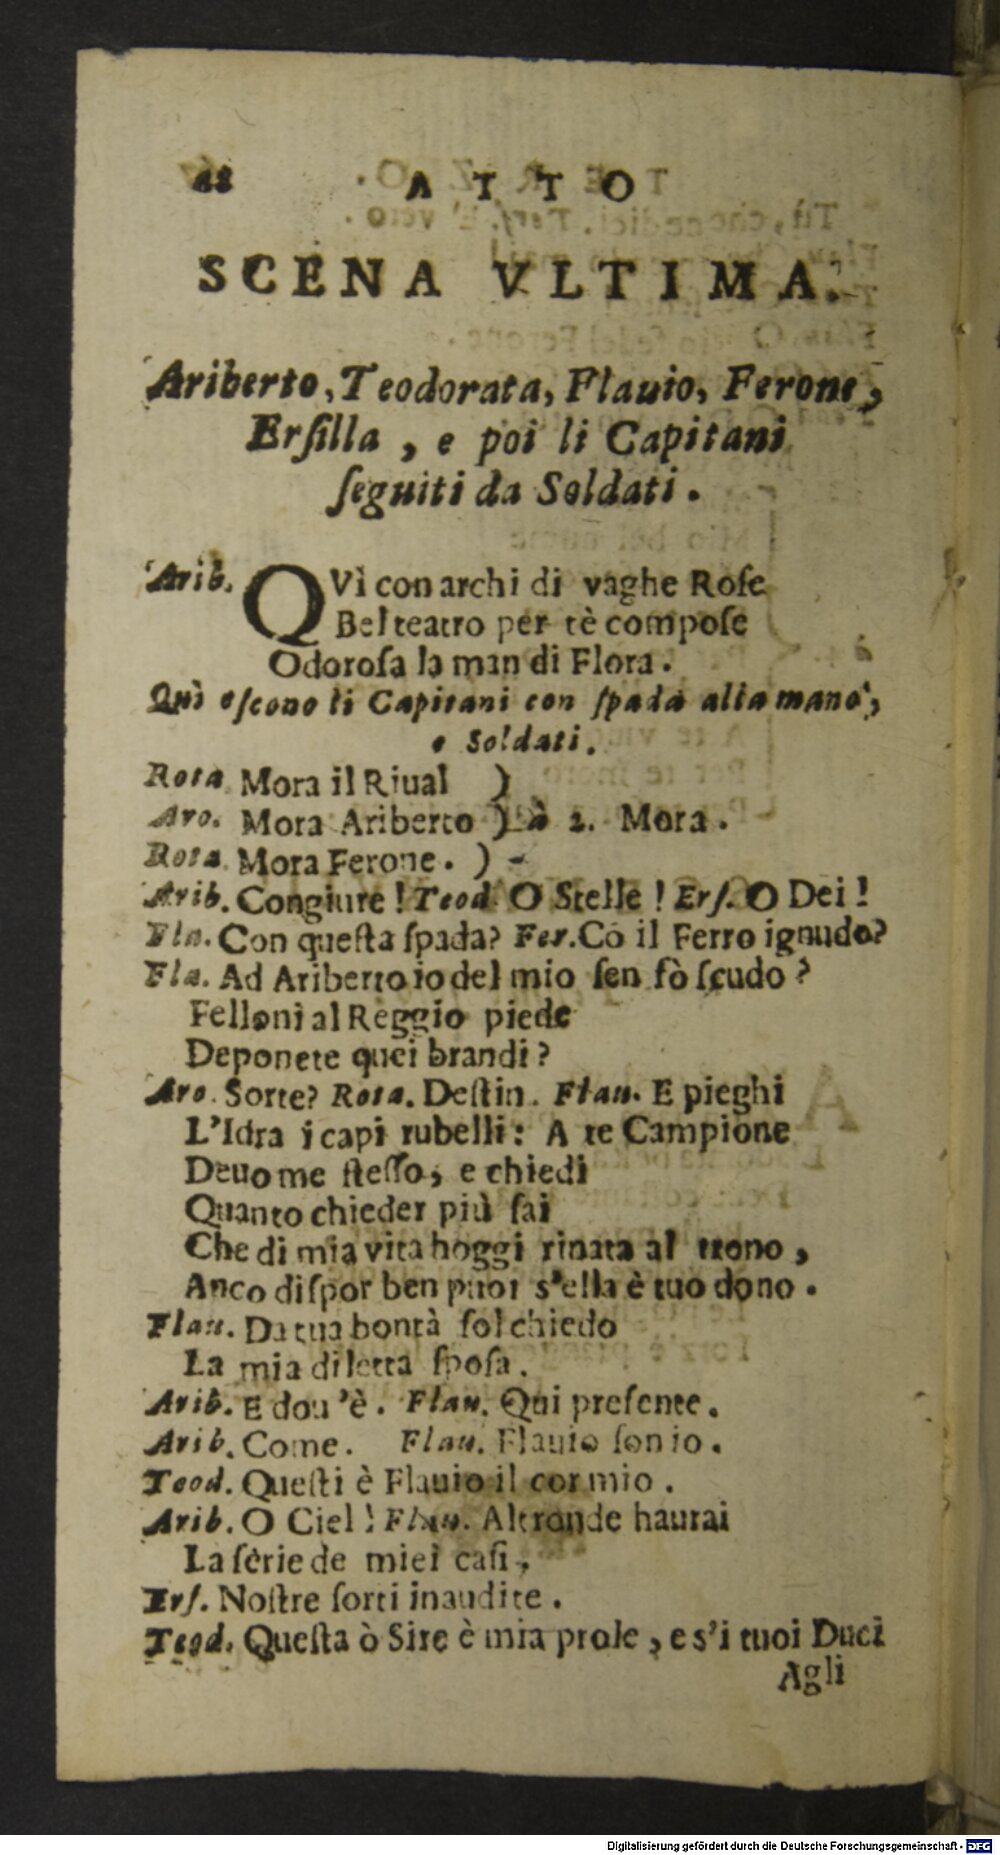 68 ATTO
SCENA VLTIMA.
Ariberto, Teodorata, Flauio, Ferone,
Erſilla, e poi li Capitani
ſeguiti da Soldati.
Arib. QVì con archi di vaghe Roſe
Bel teatro per tè compoſe
Odoroſa la man di Flora.
Quì eſcono li Capitani con ſpada alla mano,
e Soldati.
Rota Mora il Riual )
Aro. Mora Ariberto ) à 2. Mora.
Rota Mora Ferone. )
Arib. Congiure! Teod. O Stelle! Erſ. O Dei!
Fla. Con queſta ſpada? Fer. Cō il Ferro ignudo?
Fla. Ad Ariberto io del mio ſen fò ſcudo?
Felloni al Reggio piede
Deponete quei brandi?
Aro. Sorte? Rota. Deſtin. Flau. E pieghi
L'Idra i capi rubelli: A te Campione
Deuo me ſteſſo, e chiedi
Quanto chieder più ſai
Che di mia vita hoggi rinata al trono,
Anco diſpor ben puoi s'ella è tuo dono.
Flau. Da tua bontà ſol chiedo
La mia diletta ſpoſa.
Arib. E dou'è. Flau. Qui preſente.
Arib. Come. Flau. Flauio ſon io.
Teod. Queſti è Flauio il cor mio.
Arib. O Ciel! Flau. Altronde haurai
La ſerie de miei caſi,
Erſ. Noſtre ſorti inaudite.
Teod. Queſta ò Sire è mia prole, e s'i tuoi Duci
Agli
Digitalisierung gefördert durch die Deutsche Forschungsgemeinschaft - DFG